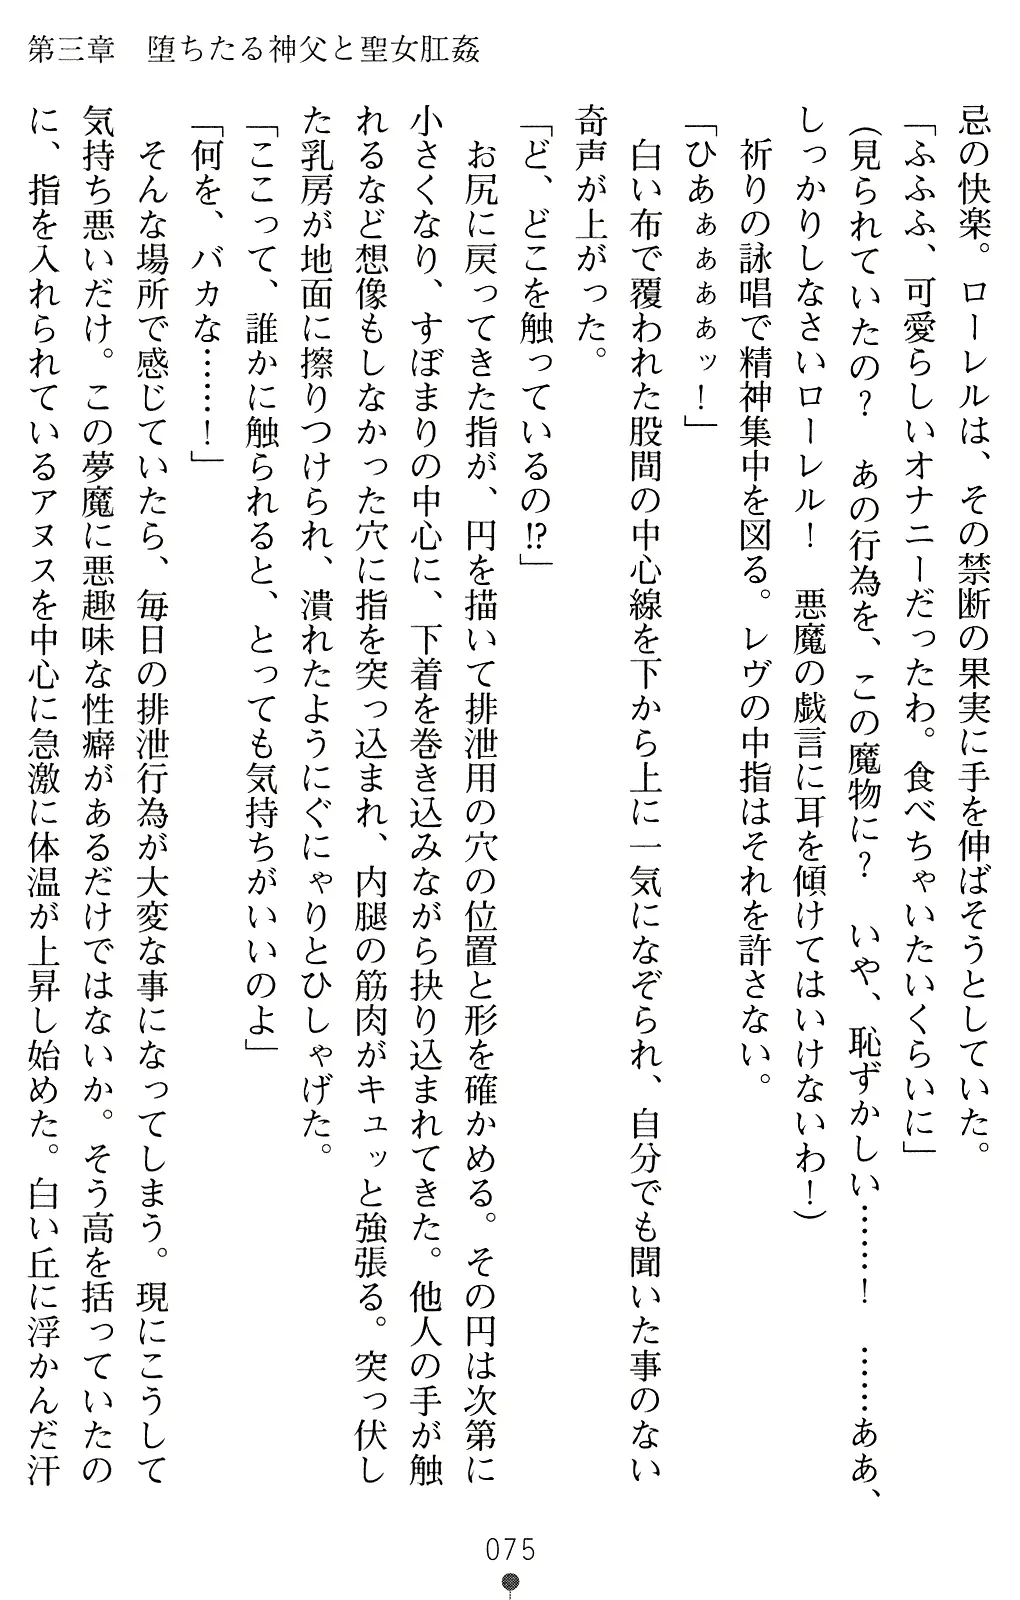 第三章　堕ちたる神父と聖女肛姦
忌の快楽。ローレルは、その禁断の果実に手を伸ばそうとしていた。
「ふふふ、可愛らしいオナニーだったわ。食べちゃいたいくらいに」
（見られていたの？　あの行為を、この魔物に？　いや、恥ずかしい……！　……ああ、
しっかりしなさいローレル！　悪魔の戯言に耳を傾けてはいけないわ！）
　祈りの詠唱で精神集中を図る。レヴの中指はそれを許さない。
「ひあぁぁぁぁッ！」
　白い布で覆われた股間の中心線を下から上に一気になぞられ、自分でも聞いた事のない
奇声が上がった。
「ど、どこを触っているの!?」
　お尻に戻ってきた指が、円を描いて排泄用の穴の位置と形を確かめる。その円は次第に
小さくなり、すぼまりの中心に、下着を巻き込みながら抉り込まれてきた。他人の手が触
れるなど想像もしなかった穴に指を突っ込まれ、内腿の筋肉がキュッと強張る。突っ伏し
た乳房が地面に擦りつけられ、潰れたようにぐにゃりとひしゃげた。
「ここって、誰かに触られると、とっても気持ちがいいのよ」
「何を、バカな……！」
　そんな場所で感じていたら、毎日の排泄行為が大変な事になってしまう。現にこうして
気持ち悪いだけ。この夢魔に悪趣味な性癖があるだけではないか。そう高を括っていたの
に、指を入れられているアヌスを中心に急激に体温が上昇し始めた。白い丘に浮かんだ汗
075